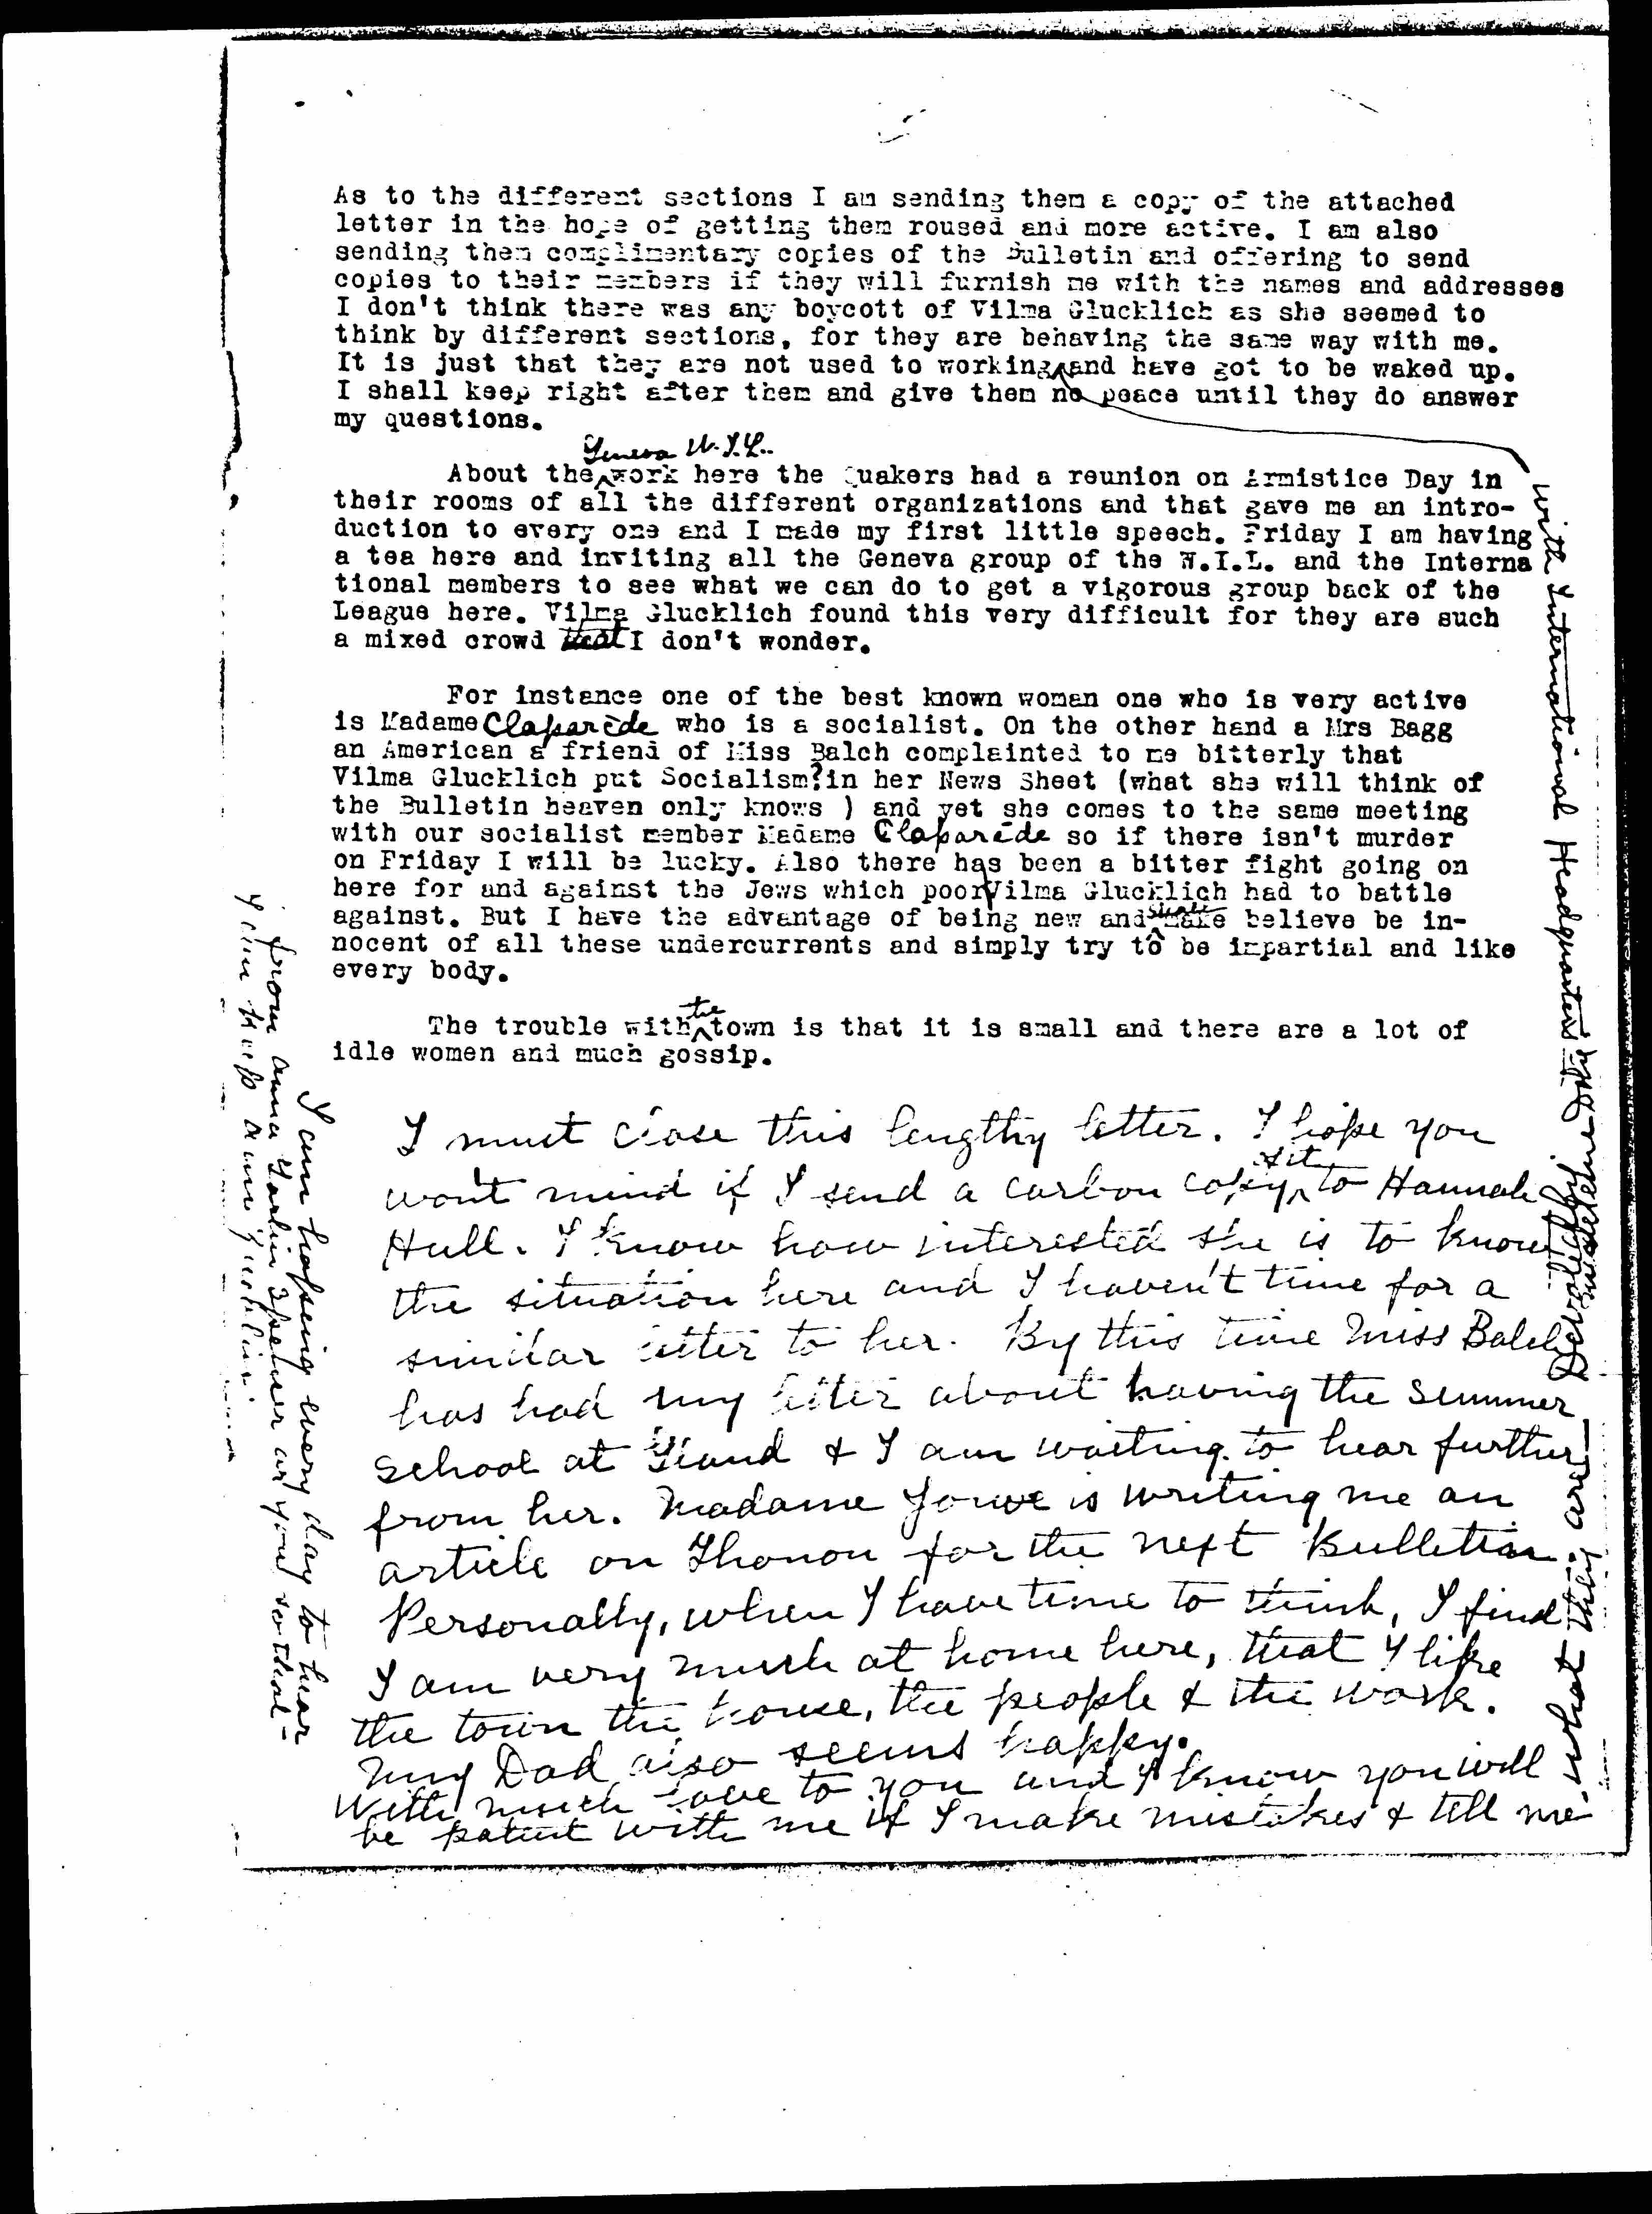 As to the different sections I am sending them a copy of the attached
letter in the hope of getting them roused and more active. I am also
sending them complimentary copies of the Bulletin and offering to send
copies to their members if they will furnish me with the names and addresses
I don't think there was any boycott of Vilma Glucklich as she seemed to
think by different sections, for they are behaving the same way with me.
It is just that they are not used to working and have got to be waked up.
I shall keep right after them and give them no peace until they do answer
my questions.
Geneva W.I.L.
About the work here the Quakers had a reunion on Armistice Day in
their rooms of all the different organizations and that gave me an intro-
duction to every one and I made my first little speech. Friday I am having
a tea here and inviting all the Geneva group of the W.I.L. and the Interna
tional members to see what we can do to get a vigorous group back of the
League here. Vilma Glucklich found this very difficult for they are such
a mixed crowd that I don't wonder.
For instance one of the best known woman one who is very active
is Madame Claparède who is a socialist. On the other hand a Mrs Bagg
an American a friend of Miss Balch complainted to me bitterly that
Vilma Glucklich put Socialism? in her News Sheet (what she will think of
the Bulletin heaven only knows ) and yet she comes to the same meeting
with our socialist member Madame Claparède so if there isn't murder
on Friday I will be lucky. Also there has been a bitter fight going on
here for and against the Jews which poor Vilma Glucklich had to battle
against. But I have the advantage of being new and make believe be in-
nocent of all these undercurrents and simply try to be impartial and like
every body.
the
The trouble with town is that it is small and there are a lot of
idle women and much gossip.
I must close this lengthy letter. I hope you
of it
wont mind if I send a carbon copy to Hannah
Hull. I know how interested she is to know
the situation here and I haven't time for a
similar letter to her. By this time Miss Balch
has had my letter about having the summer
school at Gland & I am waiting to hear further
from her. Madame Jouve is writing me an
article on Thonon for the next Bulletin.
Personally, when I have time to think, I find
I am very much at home here, that I like
the town the house, the people & the work.
My Dad also seems happy.
With much love to you and I know you will
be patient with me if I make mistakes & tell me
what they are —
Devotedly
Madeleine Doty
with International Headquarters
I am hoping every day to hear
from Anna Yarlin Spencer as you